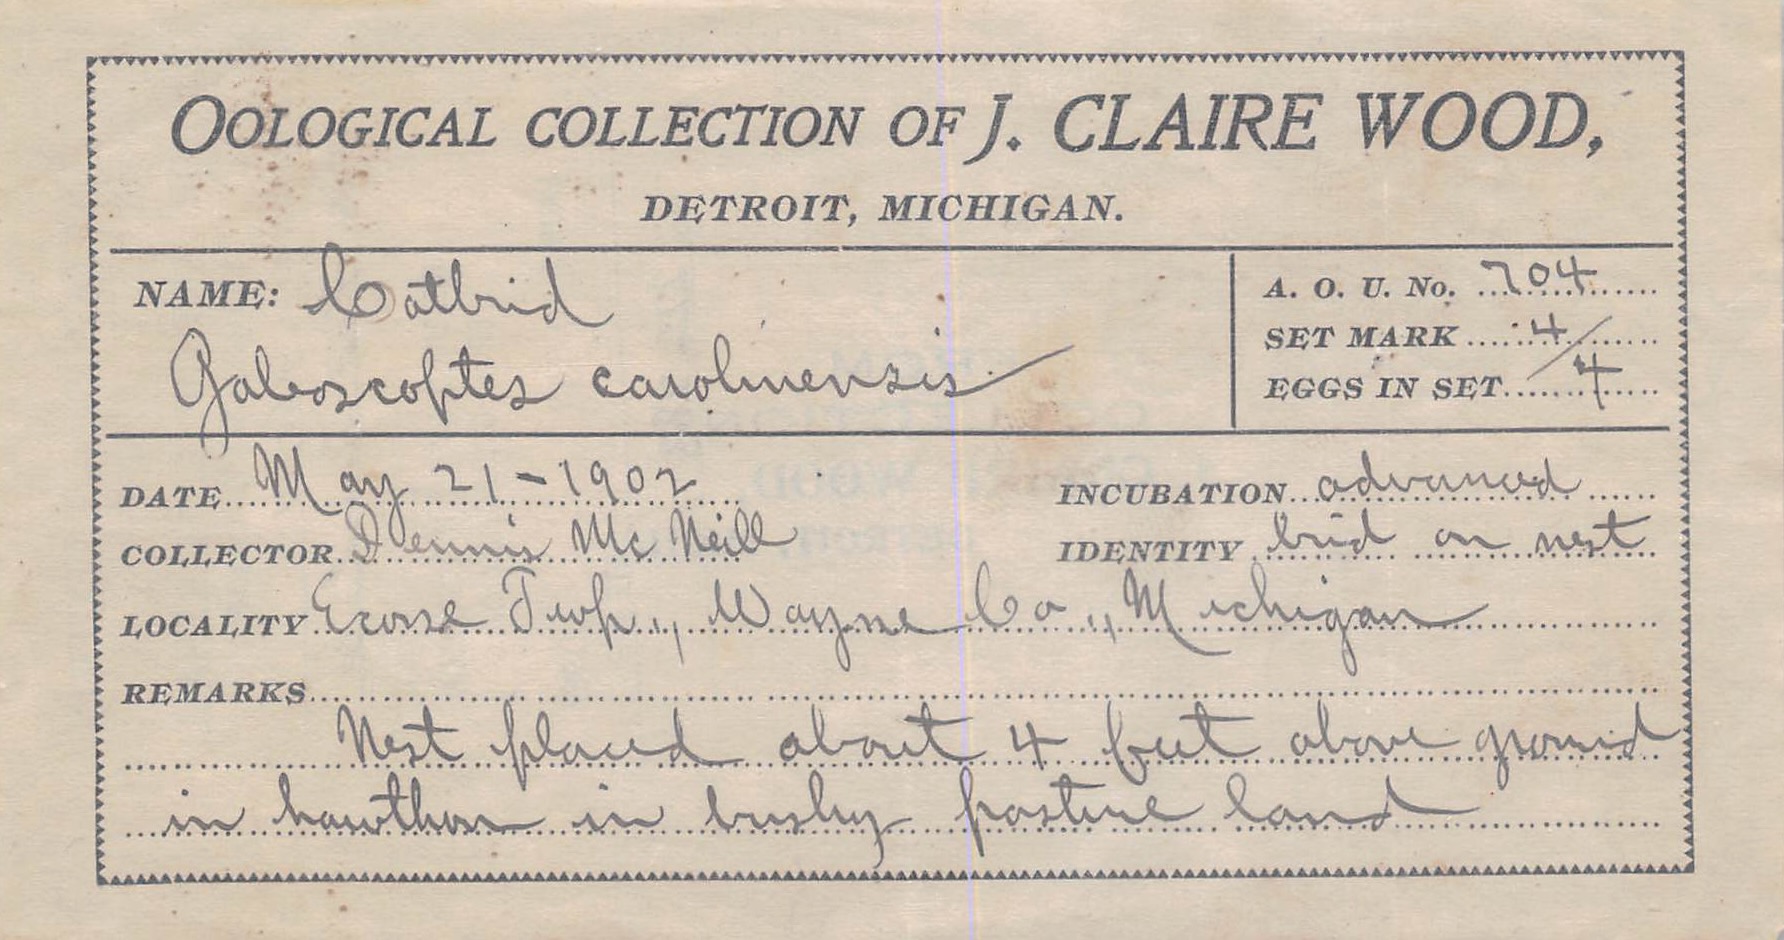 OOLOGICAL COLLECTION OF J. CLAIRE WOOD,
DETROIT, MICHIGAN.
NAME: Catbird
Galeoscoptes carolinensis
A. O. U. No. 704
SET MARK 4/
EGGS IN SET 4
DATE May 21-1902
INCUBATION advanced
COLLECTOR Dennis McNeill
IDENTITY bird on nest
LOCALITY Ecorse Twp., Wayne Co., Michigan
REMARKS
Nest placed about 4 feet above ground
in hawthorn in brushy pasture land